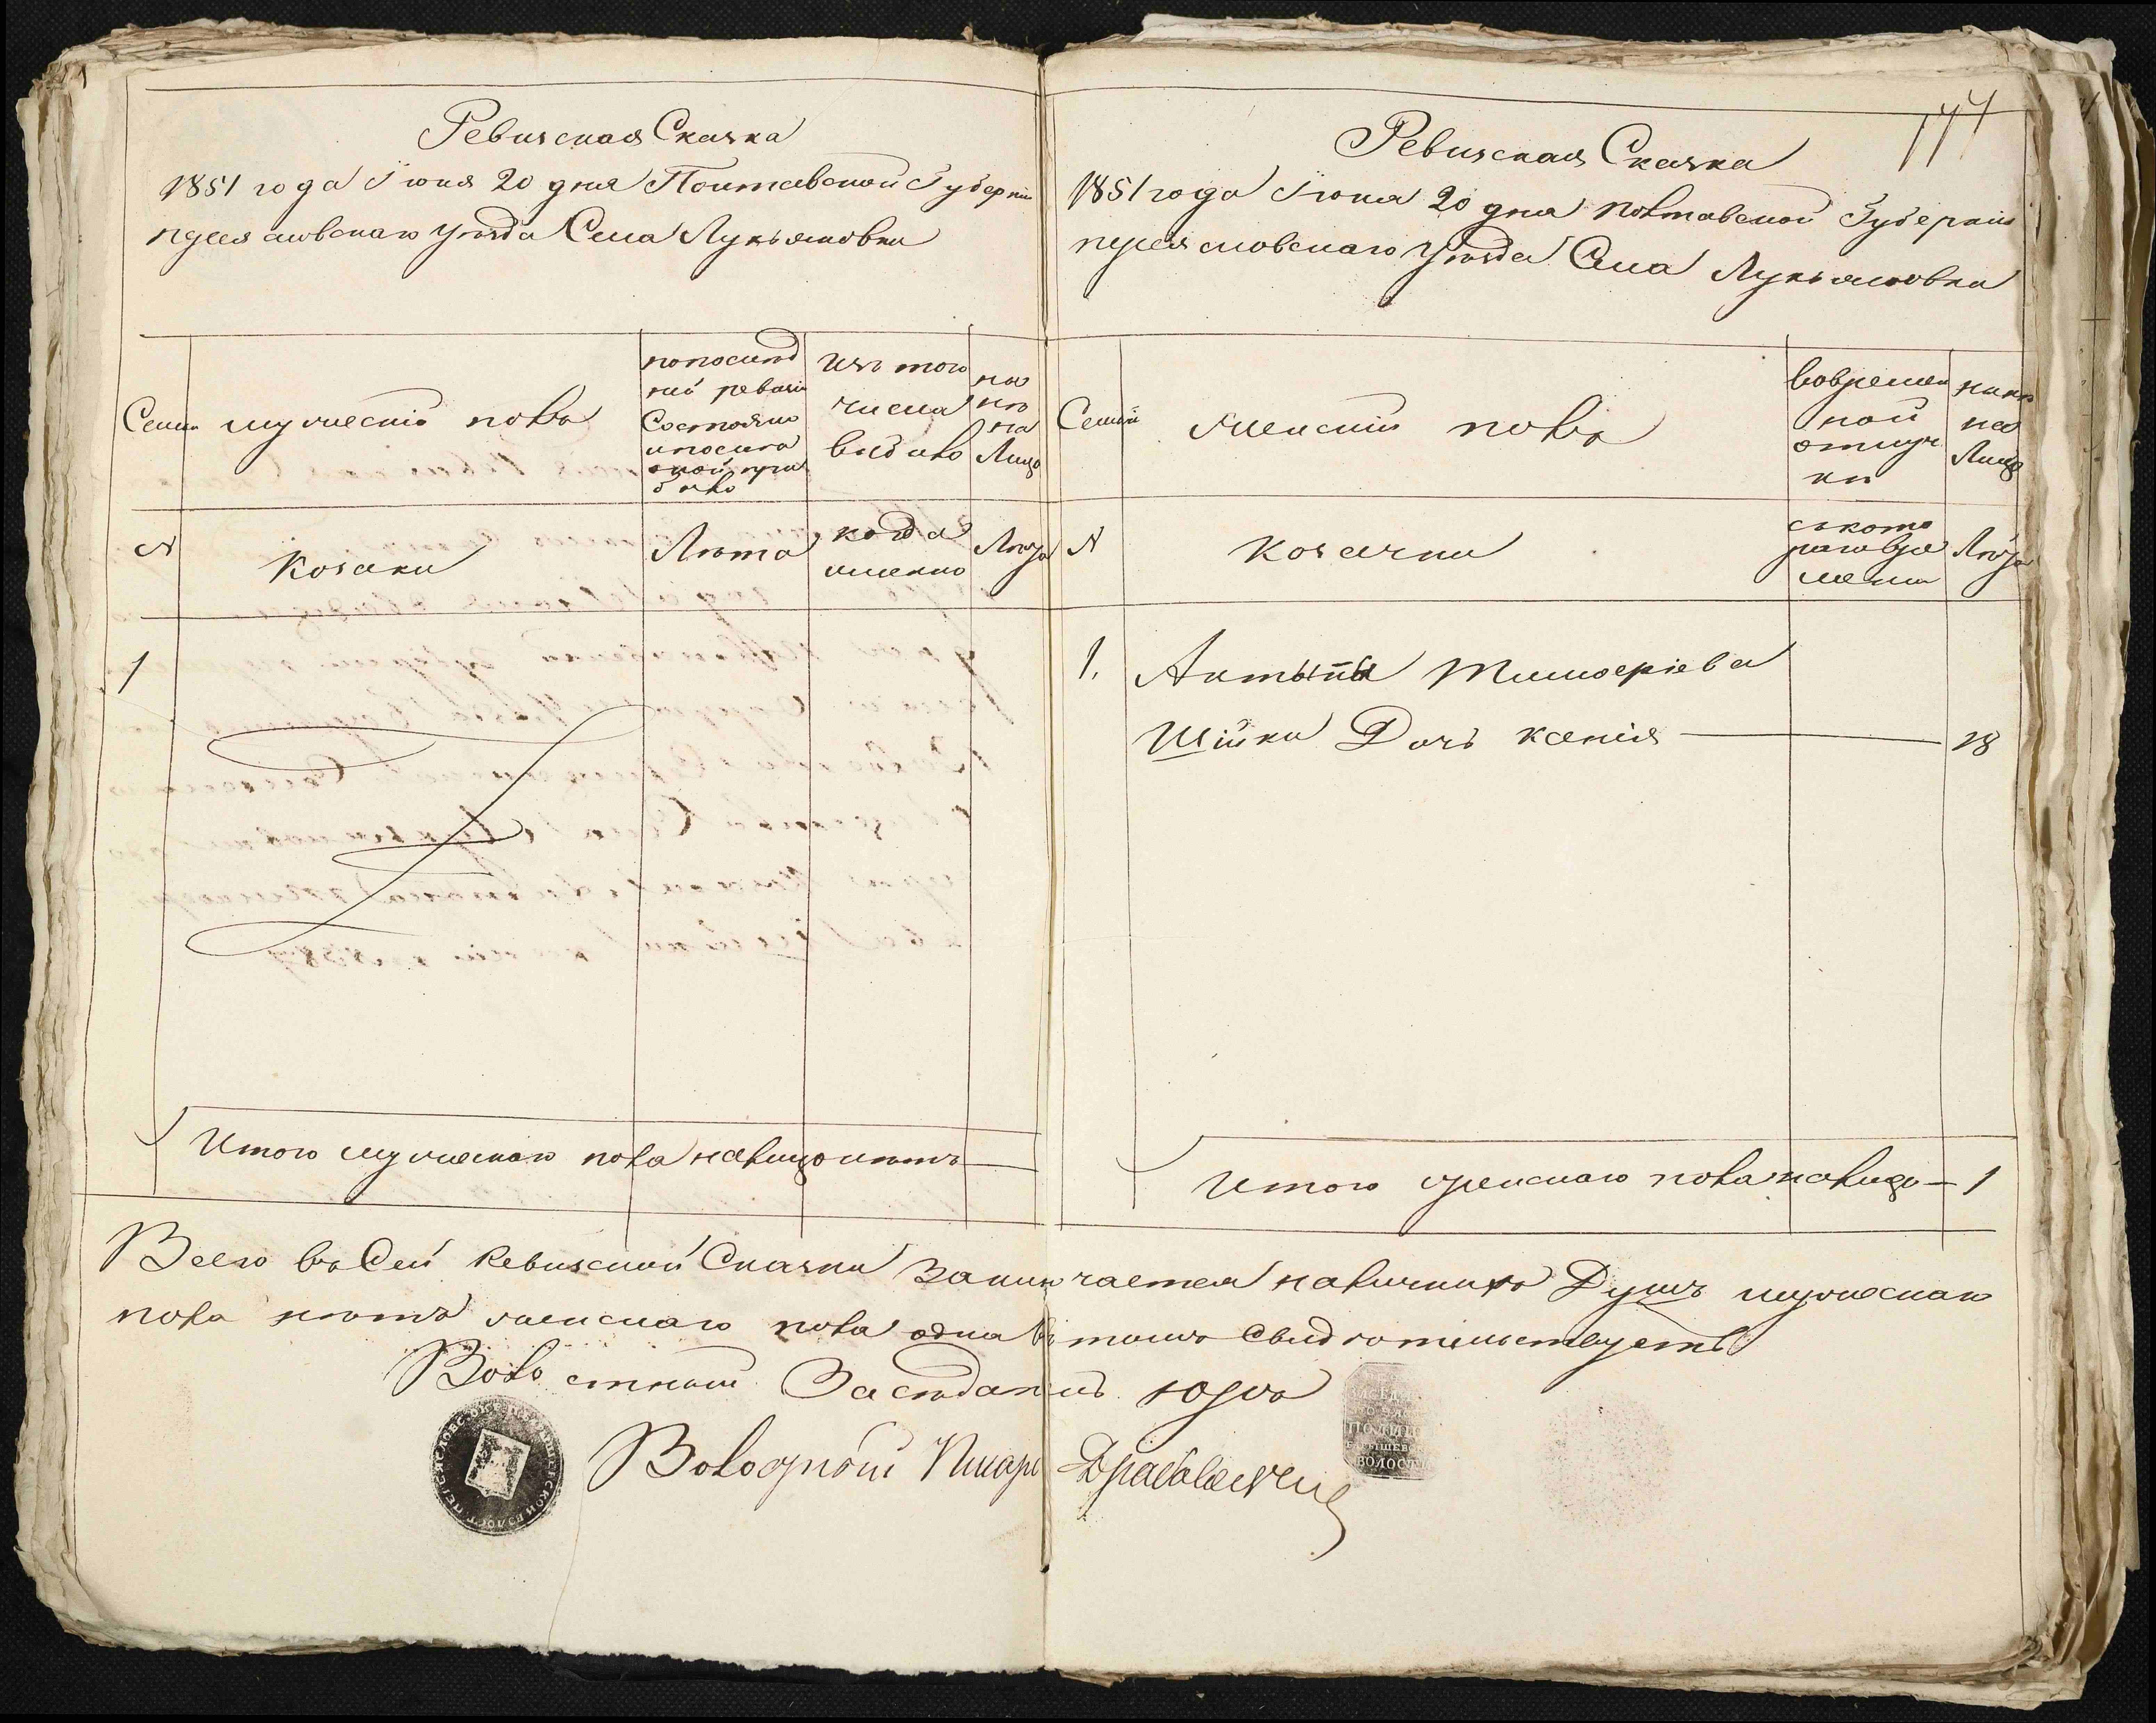 Ревизская Сказка
1851 года Іюня 20 дня Полтавской Губерніи
переясловскаго уѣзда Села Лукьяновки
Семьи
мужескій полъ
попослѣд
ней ревизіи
Состояло
ипослѣ
оной при
было
Изъ того
числа
выбыло
на
лѣ
на
Лицо
№
Козаки
Лѣта
когда
именно
Лѣта
1
Итого мужескаго пола налицо нѣтъ
177
Ревизская Сказка
1851 года Іюня 20 дня полтавской Губерніи
переясловскаго уѣзда Села Лукьяновки
Семьи
женскій полъ
вовремен
ной
отлуч
кѣ
нынѣ
на
Лицо
№
козачки
съкото
раго вре
мени
Лѣта
1. Антыпы Тимоеріева
Шійки Дочь ксенія — 18
Итого женскаго пола налицо — 1
Всего въ Сей Ревизской Сказки Заключается наличныхъ Душъ мужескаго
пола нѣтъ женскаго пола одна въ томъ Свидѣтельствуетъ
Волостный Засѣдатель юръ
Волостной Писарь
ПОЛИЦ
ВОЛОС